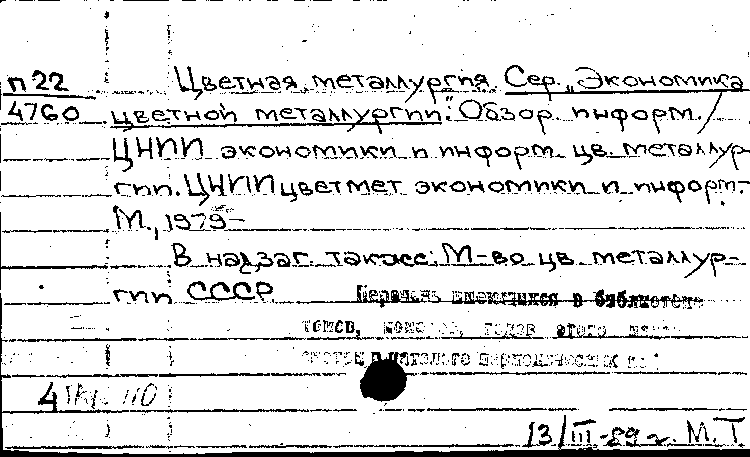 п22 Цветная металлургия. Сер. „Экономика
4760 цветной металлургии". Обзор. информ. /
ЦНИИ экономики и информ. цв. металлур-
гии. ЦНИИцветмет экономики и информ.-
М., 1979-
В надзаг. также: М-во цв. металлур-
гии СССР
Перечень имеющихся в библиотеке
томов, номеров, годов этого
в каталоге периодических
4
13/III-89 г. М. Т